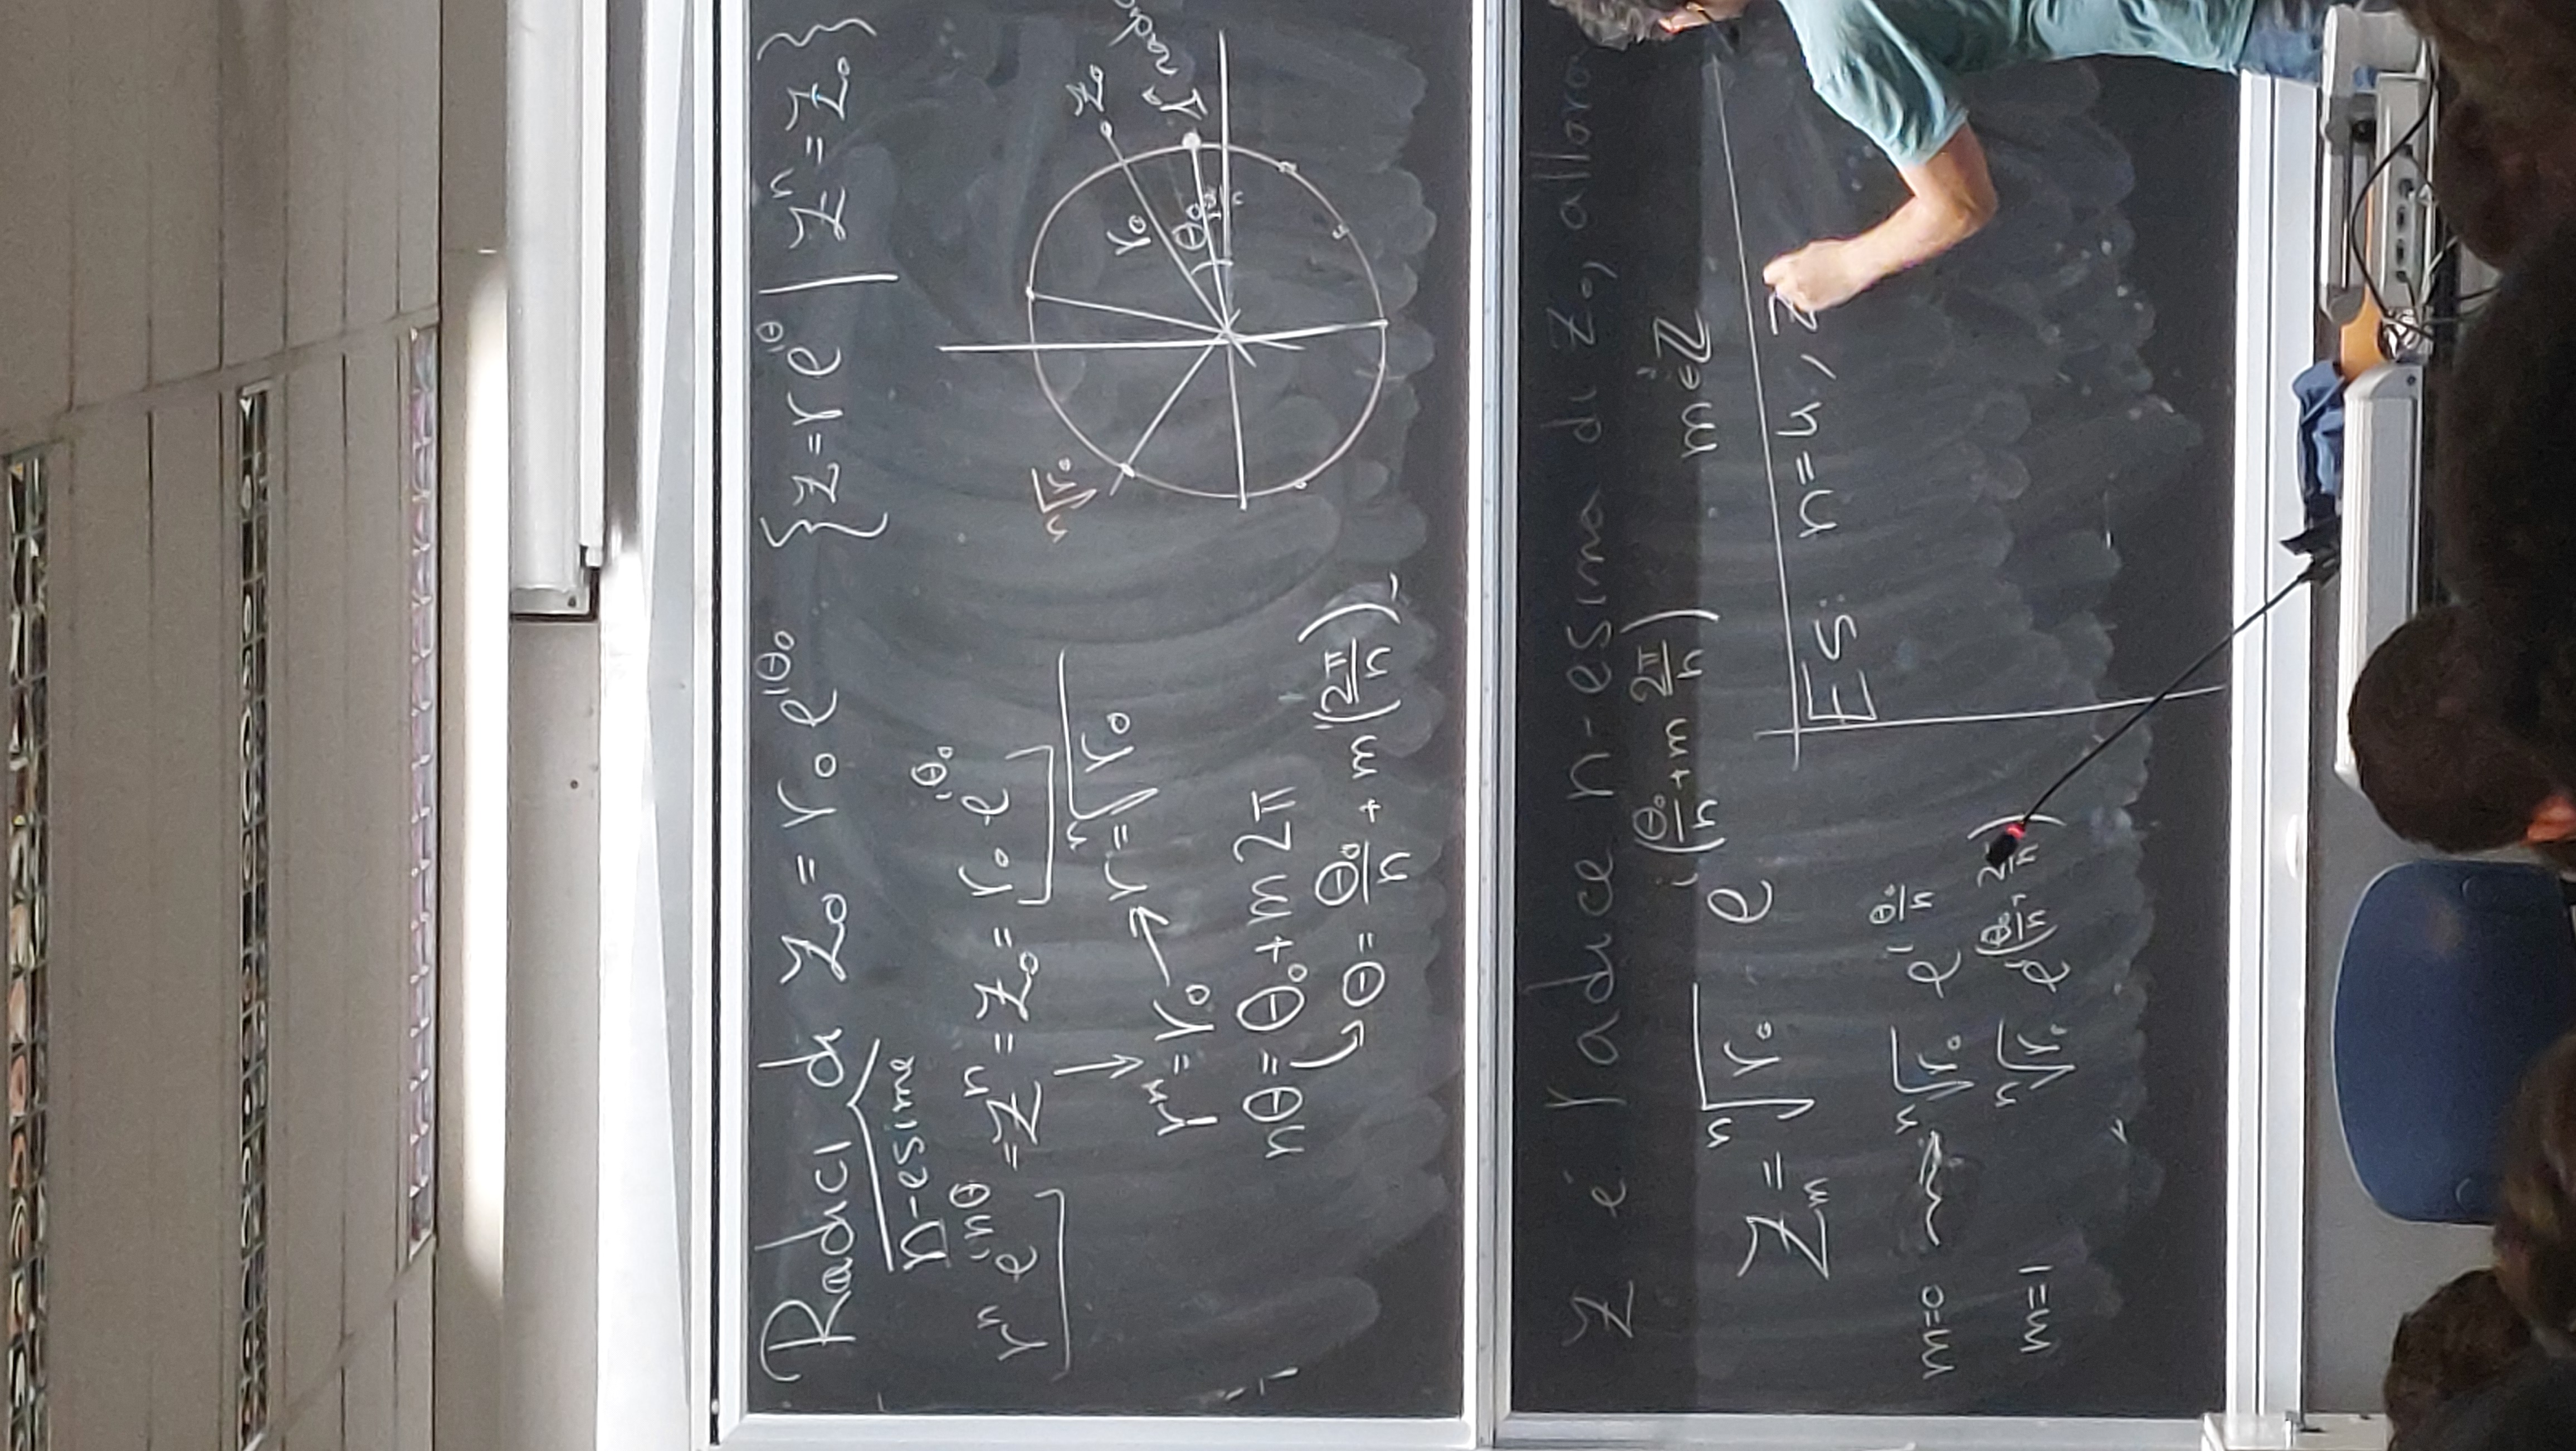 Radici di z₀ = r₀ e^{iθ₀} {z = r e^{iθ} | zⁿ = z₀}
n-esime
rⁿ e^{inθ} = zⁿ = z₀ = r₀ e^{iθ₀}
rⁿ = r₀ → r = ⁿ√r₀
nθ = θ₀ + m 2π
θ = θ₀/n + m (2π/n)
ⁿ√r₀
z₀
r₀
θ₀
1ª
z é radice n-esima di z₀, allora
z_m = ⁿ√r₀ e^{i(θ₀/n + m 2π/n)} m ∈ ℤ
m=0 ⁿ√r₀ e^{i θ₀/n}
m=1 ⁿ√r₀
ES: n=4, z